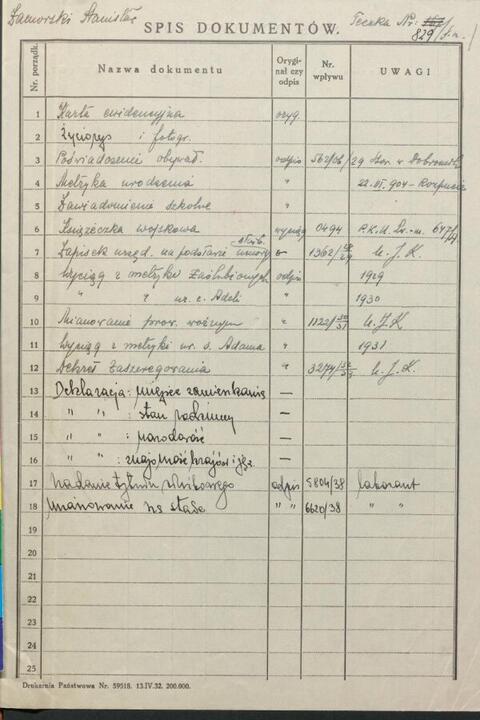 Jaworski Stanisław
SPIS DOKUMENTÓW.
Teczka Nr:
829/
Nr. porządk.
Nazwa dokumentu
Oryginał czy odpis
Nr. wpływu
UWAGI
1 Karta ewidencyjna oryg.
2 Życiorys i fotogr.
3 Poświadczenie obywat. odpis 562/26/29 Star. w Dobromilu
4 Metryka urodzenia " 22.VI.904 -
5 Zawiadomienie szkolne "
6 Książeczka wojskowa wyciąg 0494 P.K.U. Lw.-m. 647/
7 Zapisek urzęd. na podstawie umowy służb. 1362/28/29 U.J.K.
8 Wyciąg z metryki Zaślubionych odpis 1929
9 " " ur. c. Adeli " 1930
10 Mianowanie prow. woźnym " 1122/30/31 U.J.K
11 Wyciąg z metryki ur. s. Adama " 1931
12 Dekret Zaszeregowania " 3274/ U.J.K.
13 Deklaracja: miejsce zamieszkania —
14 " " : stan rodzinny —
15 " " : narodowość —
16 " " : znajomość krajów i jęz. —
17 nadanie tytułu odpis 5804/38 laborant
18 mianowanie na stałe " " 6620/38 " "
19
20
21
22
23
24
25
Drukarnia Państwowa Nr. 59518. 13.IV.32. 200.000.